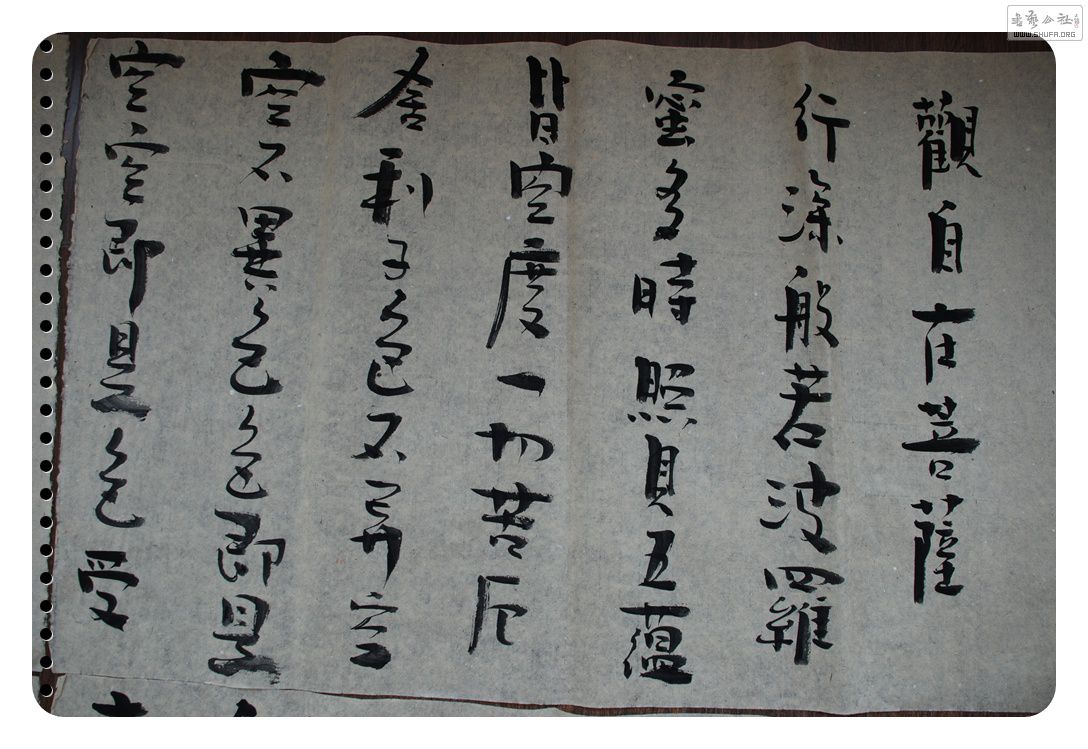 觀自在菩薩
行深般若波羅
蜜多時照見五蘊
皆空度一切苦厄
舍利子色不异空
空不異色色即是
空空即是色受
書藝公社
WWW.SHUFA.ORG